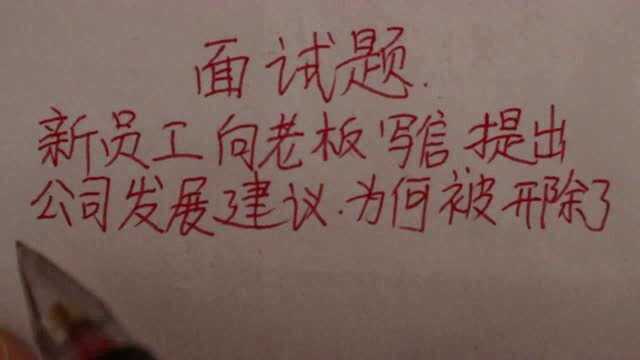 面试题.
新员工向老板写信提出
公司发展建议.为何被开除了